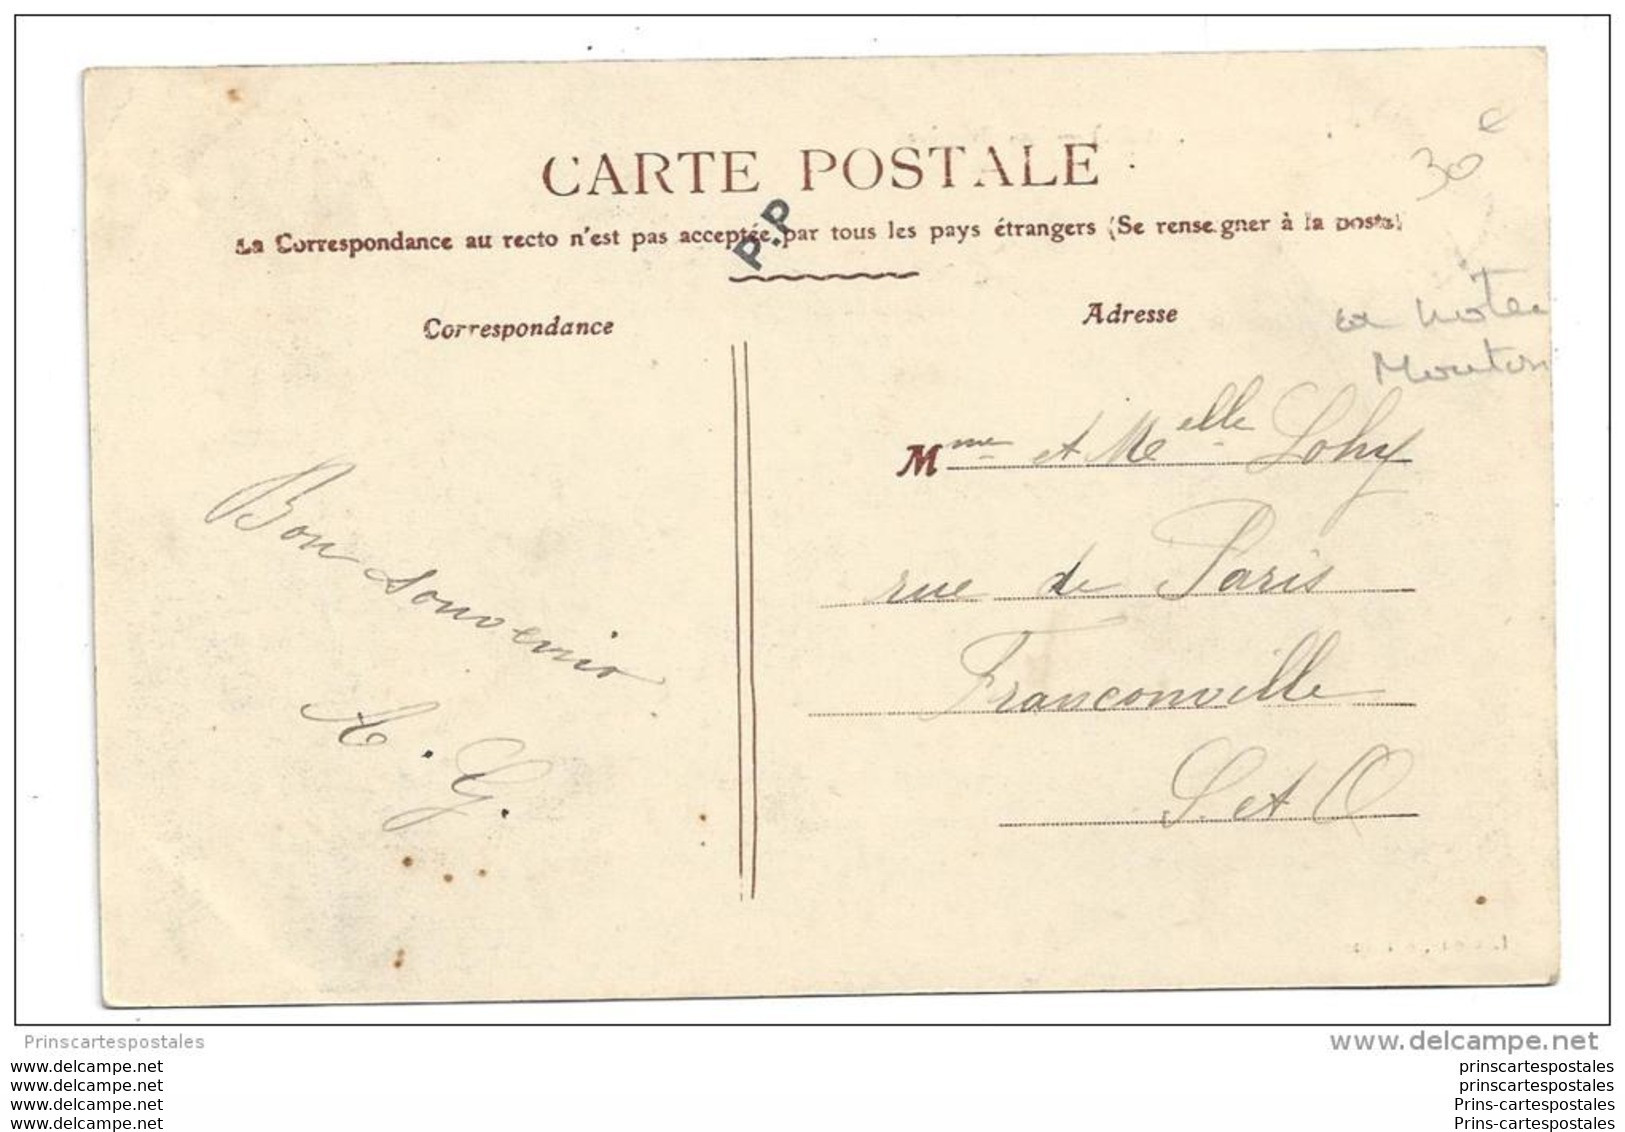 CARTE POSTALE
30 €
La Correspondance au recto n'est pas acceptée par tous les pays étrangers (Se renseigner à la poste)
P.P
Correspondance
Adresse
ex hotel
Mouton
Mme et Melle Lohy
rue de Paris
Franconville
S. et O
Bon souvenir
A. G.
Prinscartespostales
www.delcampe.net
www.delcampe.net
www.delcampe.net
www.delcampe.net
www.delcampe.net
prinscartespostales
prinscartespostales
Prins-cartespostales
Prins-cartespostales